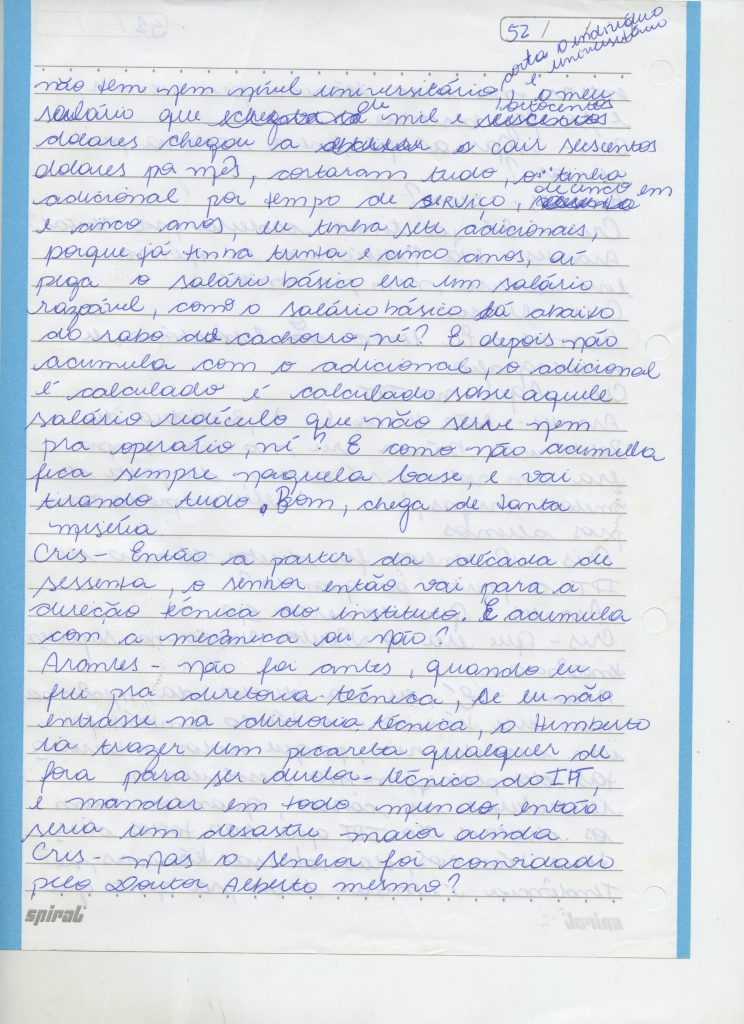 52 /
porta o indivíduo
é universitário
não tem nem nível universitário, o meu
salário que chegava a de mil e seiscentos oitocentos
dolares chegou a abaixar a cair seiscentos
dolares por mês, cortaram tudo, o tinha
adicional por tempo de serviço, de cinco em
e cinco anos, eu tinha sete adicionais,
porque já tinha trinta e cinco anos, aí
pega o salário básico era um salário
razoável, como o salário básico lá abaixo
do rabo do cachorro, né? E depois não
acumula com o adicional, o adicional
é calculado é calculado sobre aquele
salário redículo que não serve nem
pra operário, né? E como não acumula
fica sempre naquela base, e vai
tirando tudo. Bom, chega de tanta
miséria.
Cris - Então a partir da década de
sessenta, o senhor então vai para a
direção técnica do instituto. E acumula
com a mecânica ou não?
Arantes - não foi antes, quando eu
fui pra diretoria-técnica, se eu não
entrasse na diretoria-técnica, o Humberto
ia trazer um picareta qualquer de
fora para ser diretor-técnico do IPT,
e mandar em todo mundo, então
seria um desastre maior ainda.
Cris - mas o senhor foi convidado
pelo Doutor Alberto mesmo?
spiral